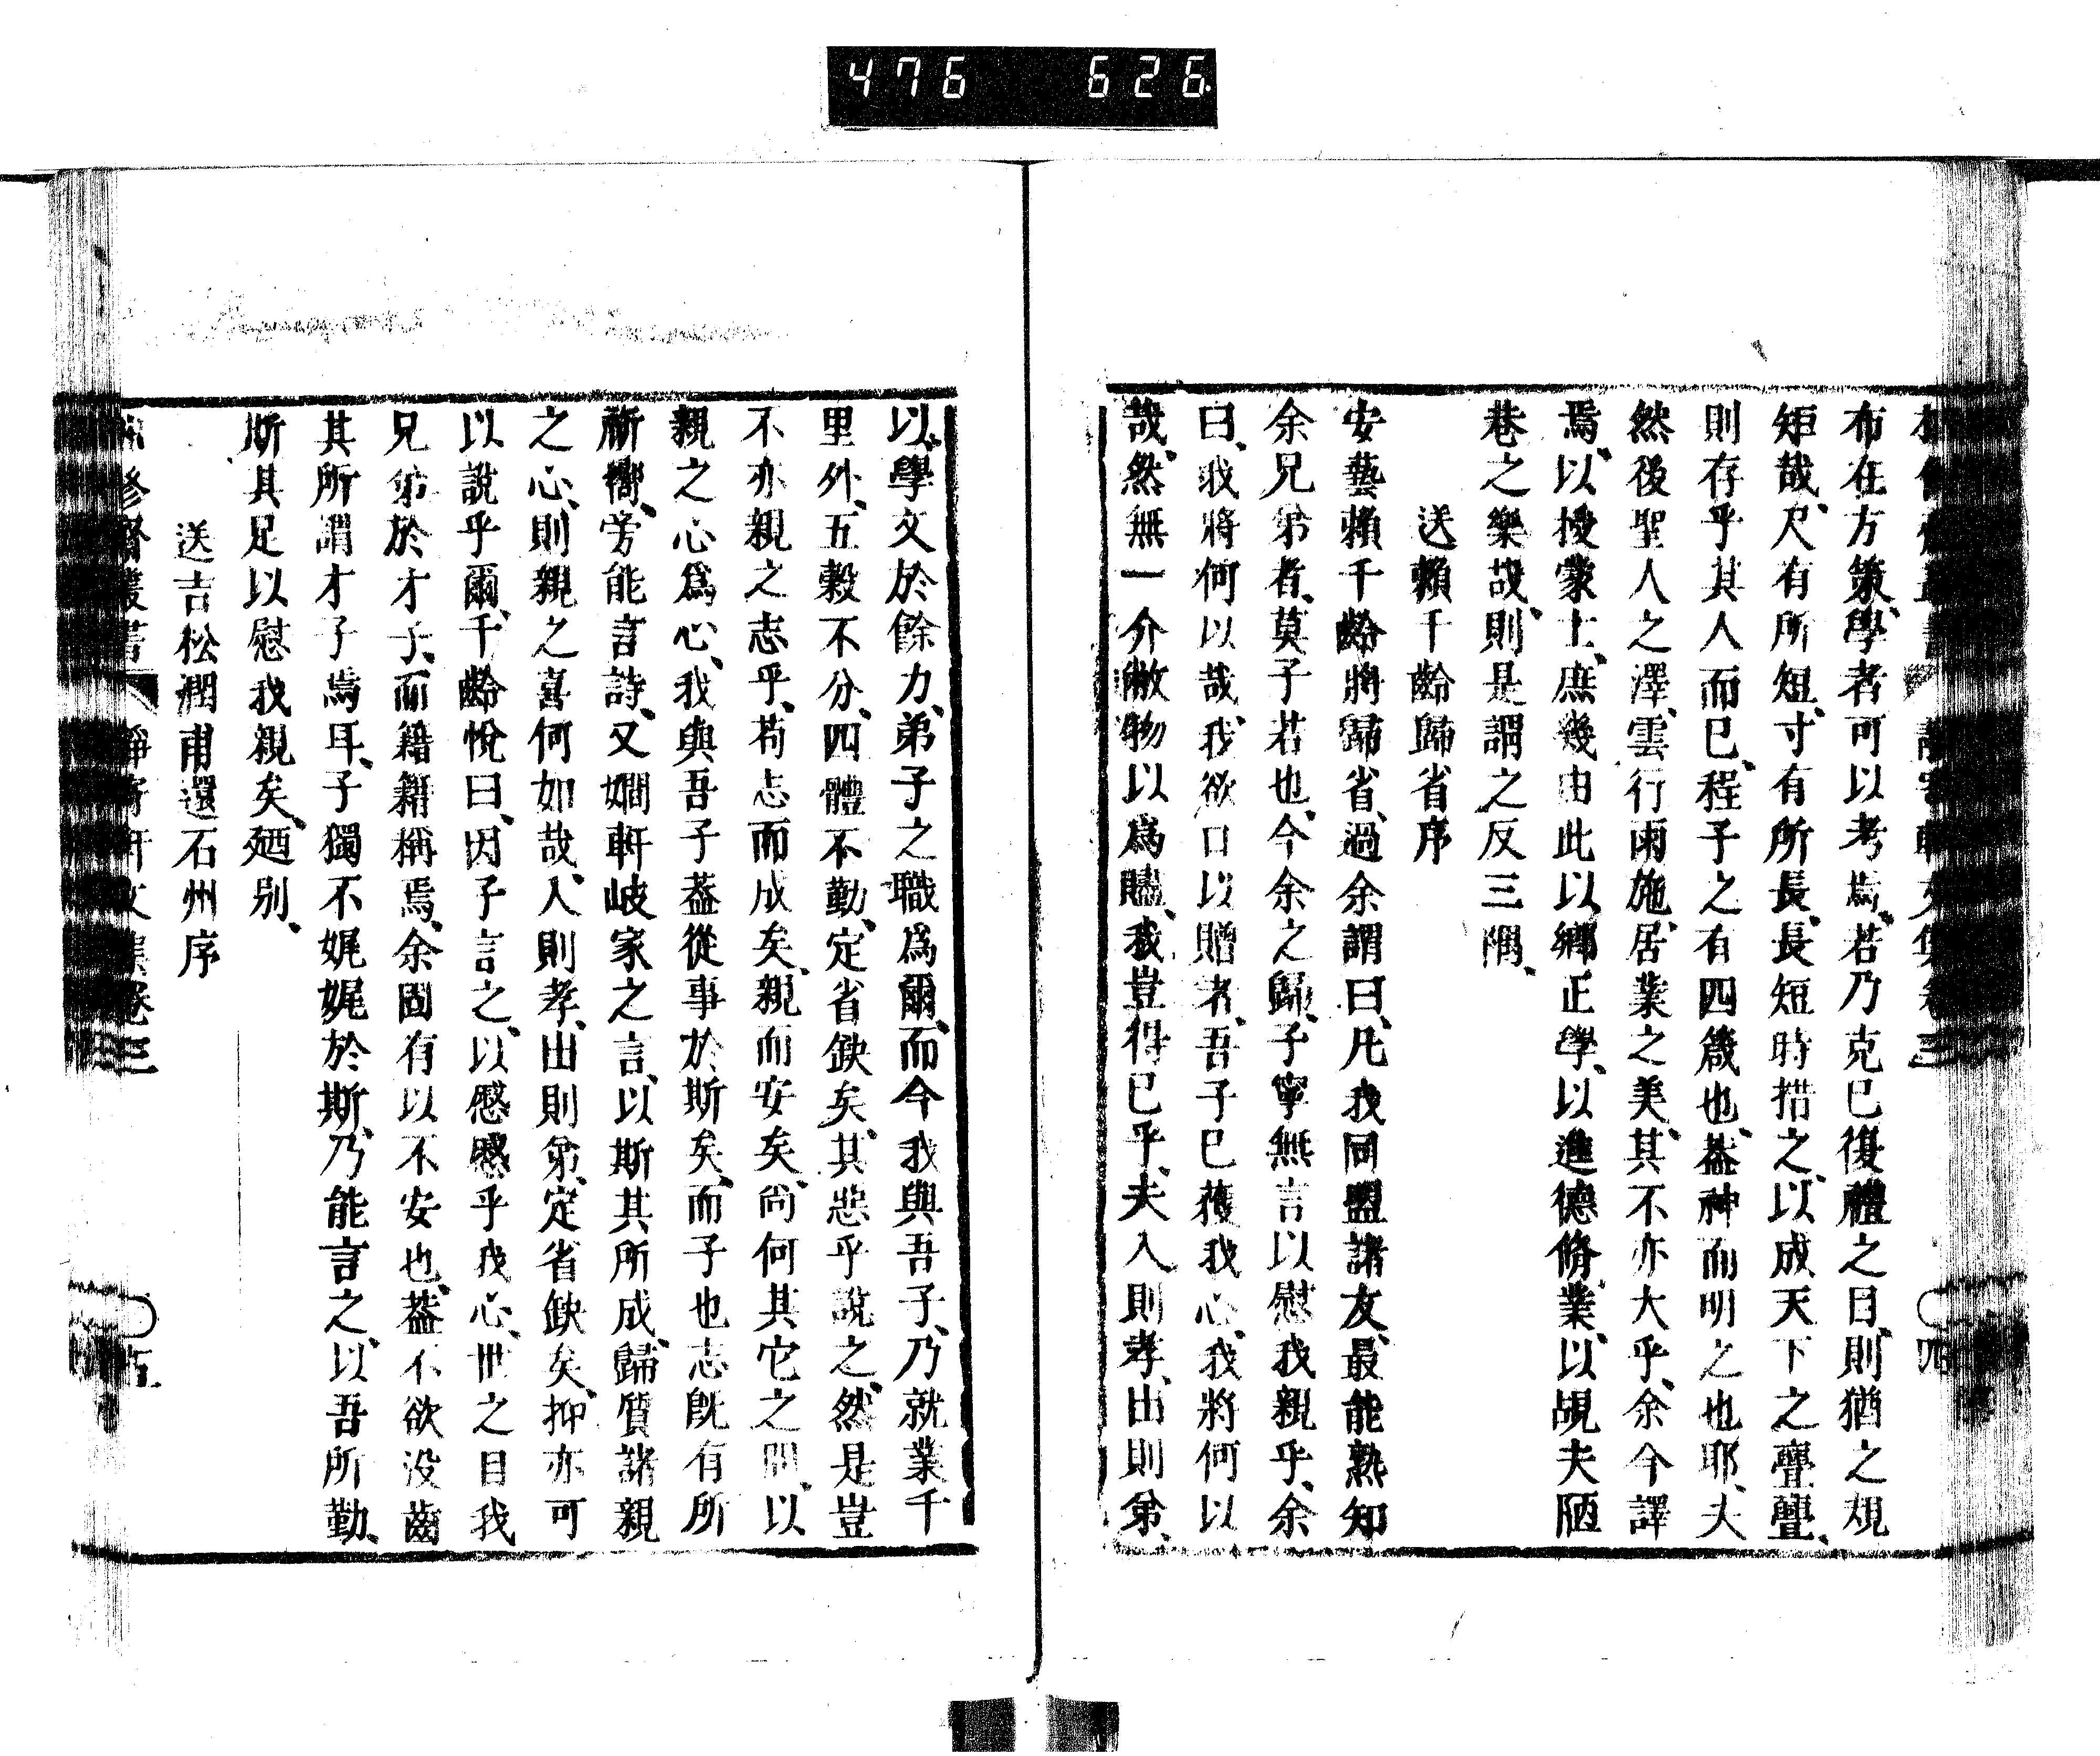 476 626
布在方策、學者可以考焉、若乃克已復禮之目、則猶之規
矩哉、尺有所短、寸有所長、長短時措之、以成天下之亹亹、
則存乎其人而已、程子之有四箴也、蓋神而明之也耶、夫
然後聖人之澤、雲行雨施、居業之美、其不亦大乎、余今譯
焉、以授蒙士、庶幾由此以鄉正學、以進德脩業、以覘夫陋
巷之樂哉、則是謂之反三隅、
送賴千齡歸省序
安藝賴千齡將歸省、過余謂曰、凡我同盟諸友、最能熟知
余兄弟者、莫子若也、今余之歸、子寧無言以慰我親乎、余
曰、我將何以哉、我欲口以贈者、吾子已獲我心、我將何以
哉、然無一介敝物以爲贐、我豈得已乎、夫入則孝、出則弟、
以學文於餘力、弟子之職爲爾、而今我與吾子、乃就業千
里外、五穀不分、四體不勤、定省缺矣、其悲乎說之、然是豈
不亦親之志乎、苟志而成矣、親而安矣、尚何其它之問、以
親之心爲心、我與吾子蓋從事於斯矣、而子也志既有所
斬嚮、旁能言詩、又嫺軒岐家之言、以斯其所成、歸質諸親
之心、則親之喜何如哉、入則孝、出則弟、定省缺矣、抑亦可
以說乎爾、千齡悅曰、因子言之、以慼慼乎我心、世之目我
兄弟於才子、而籍籍稱焉、余固有以不安也、蓋不欲沒齒
其所謂才子焉耳、子獨不娓娓於斯、乃能言之、以吾所勤、
斯其足以慰我親矣、廼別、
送吉松潤甫還石州序